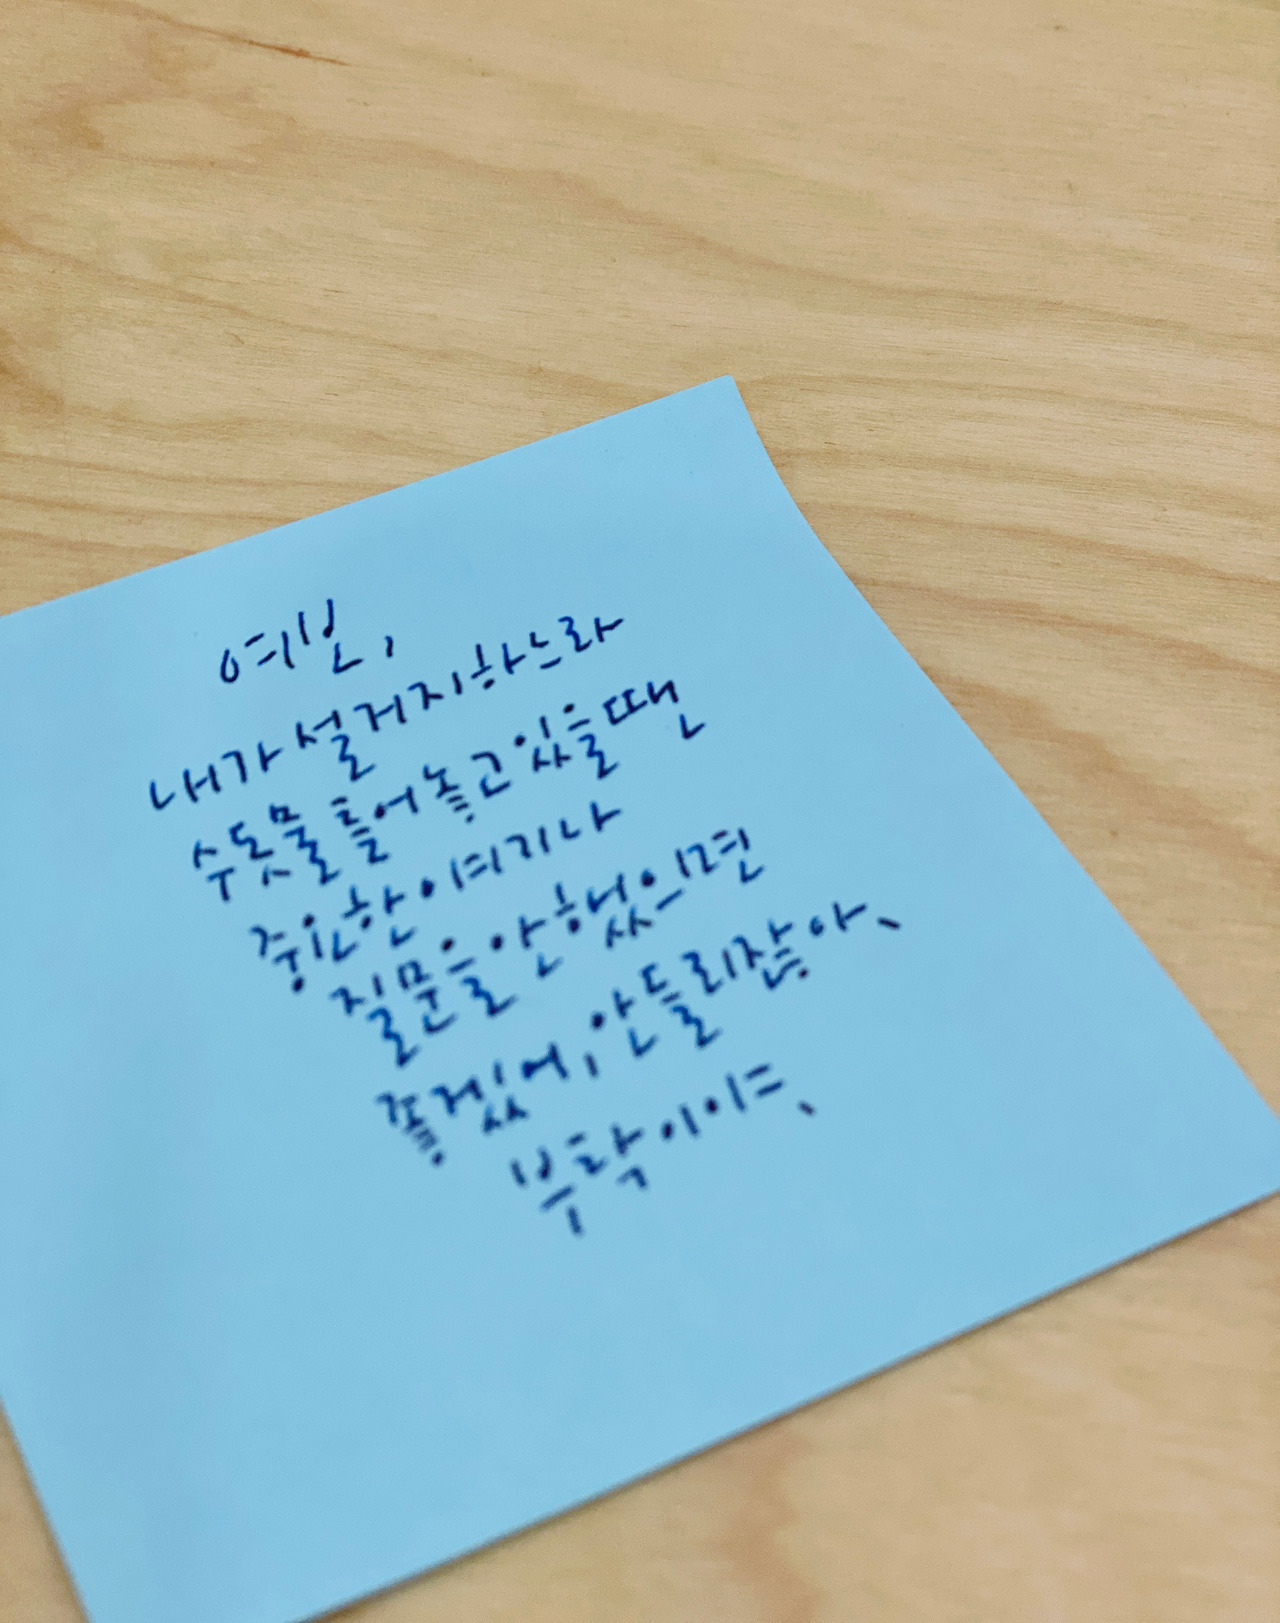 여보,
내가 설거지하느라
수돗물 틀어 놓고 있을 땐
중요한 얘기나
질문을 안 했으면
좋겠어, 안 들리잖아.
부탁이야.